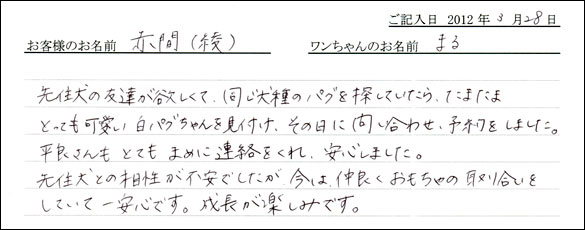 ご記入日 2012年 3月28日
お客様のお名前 赤間（綾） ワンちゃんのお名前 まる
先住犬の友達が欲しくて、同じ犬種のパグを探していたら、たまたま
とっても可愛い白パグちゃんを見付け、その日に問い合わせ、予約をしました。
平良さんもとてもまめに連絡をくれ、安心しました。
先住犬との相性が不安でしたが、今は、仲良くおもちゃの取り合いを
していて一安心です。成長が楽しみです。